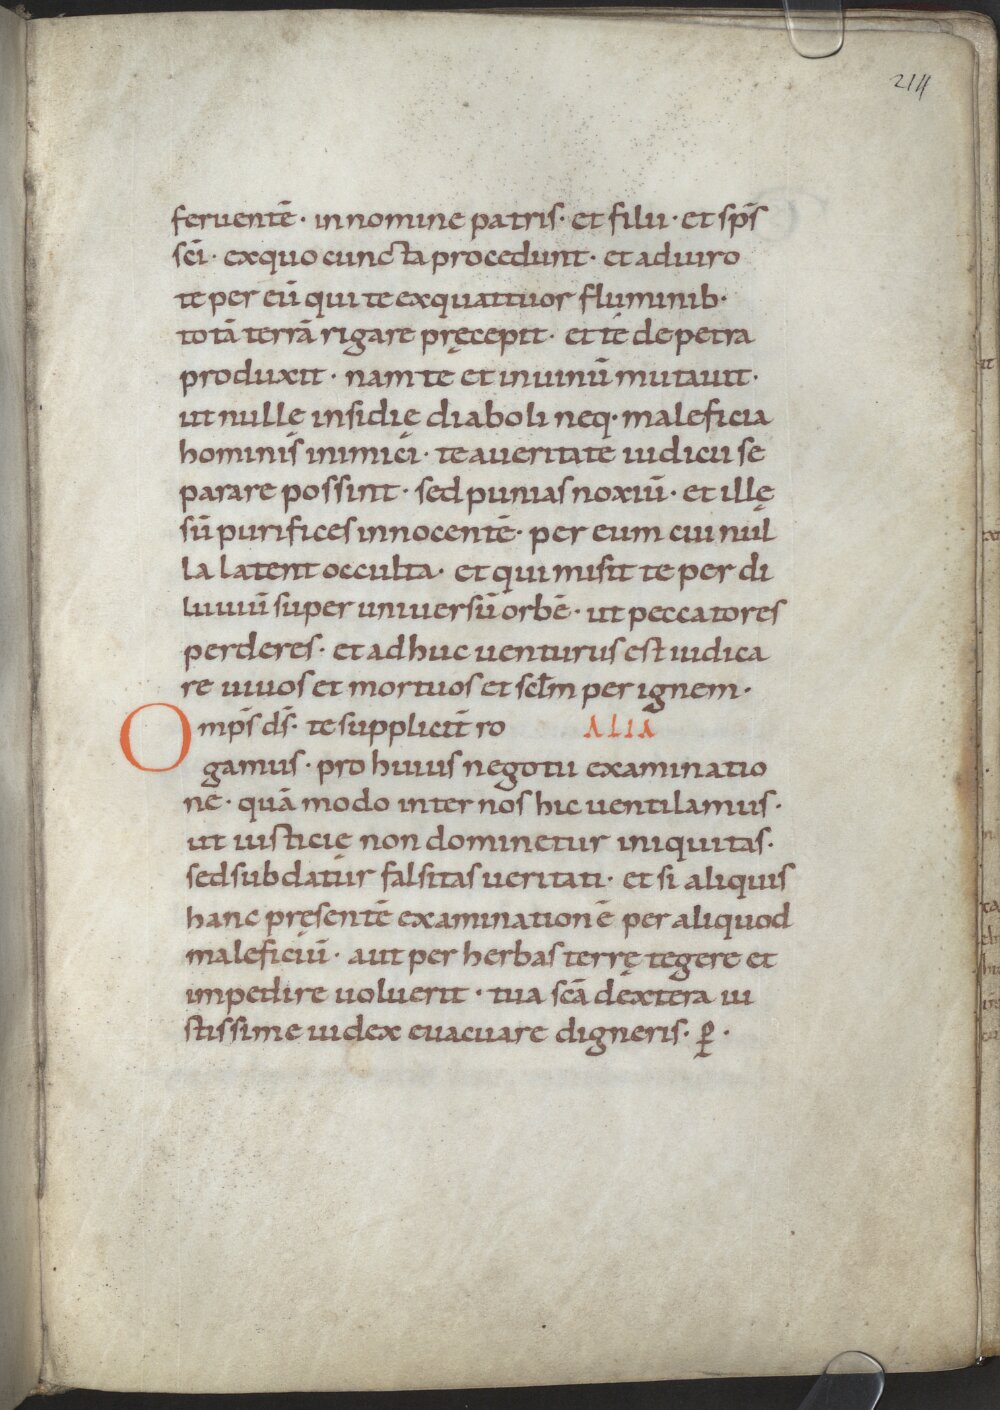 214
feruentē · innomine patris · et filii · et sp̄s
sc̄i · exquo cuncta procedunt · et adiuro
te per eū qui te exquattuor fluminib·
totā terrā rigare pręcepit · et te depetra
produxit · nam te et inuinū mutauit ·
ut nullę insidię diaboli neq· maleficia
hominis inimici · te aueritate iudicii se
parare possint · sed punias noxiū · et ille
sū purifices innocentē · per eum cui nul
la latent occulta · et qui misit te per di
luuiū super uniuersū orbē · ut peccatores
perderes · et adhuc uenturus est iudica
re uiuos et mortuos et sclm̄ per ignem ·
Omps̄ ds̄ · te supplicit̄ ro ALIA
gamus · pro huius negotii examinatio
ne · quā modo inter nos hic uentilamus ·
ut iusticię non dominetur iniquitas ·
sed subdatur falsitas ueritati · et si aliquis
hanc pręsentē examinationē per aliquod
maleficiū · aut per herbas terrę tegere et
impedire uoluerit · tua sc̄a dextera iu
stissime iudex euacuare digneris · ꝑ ·